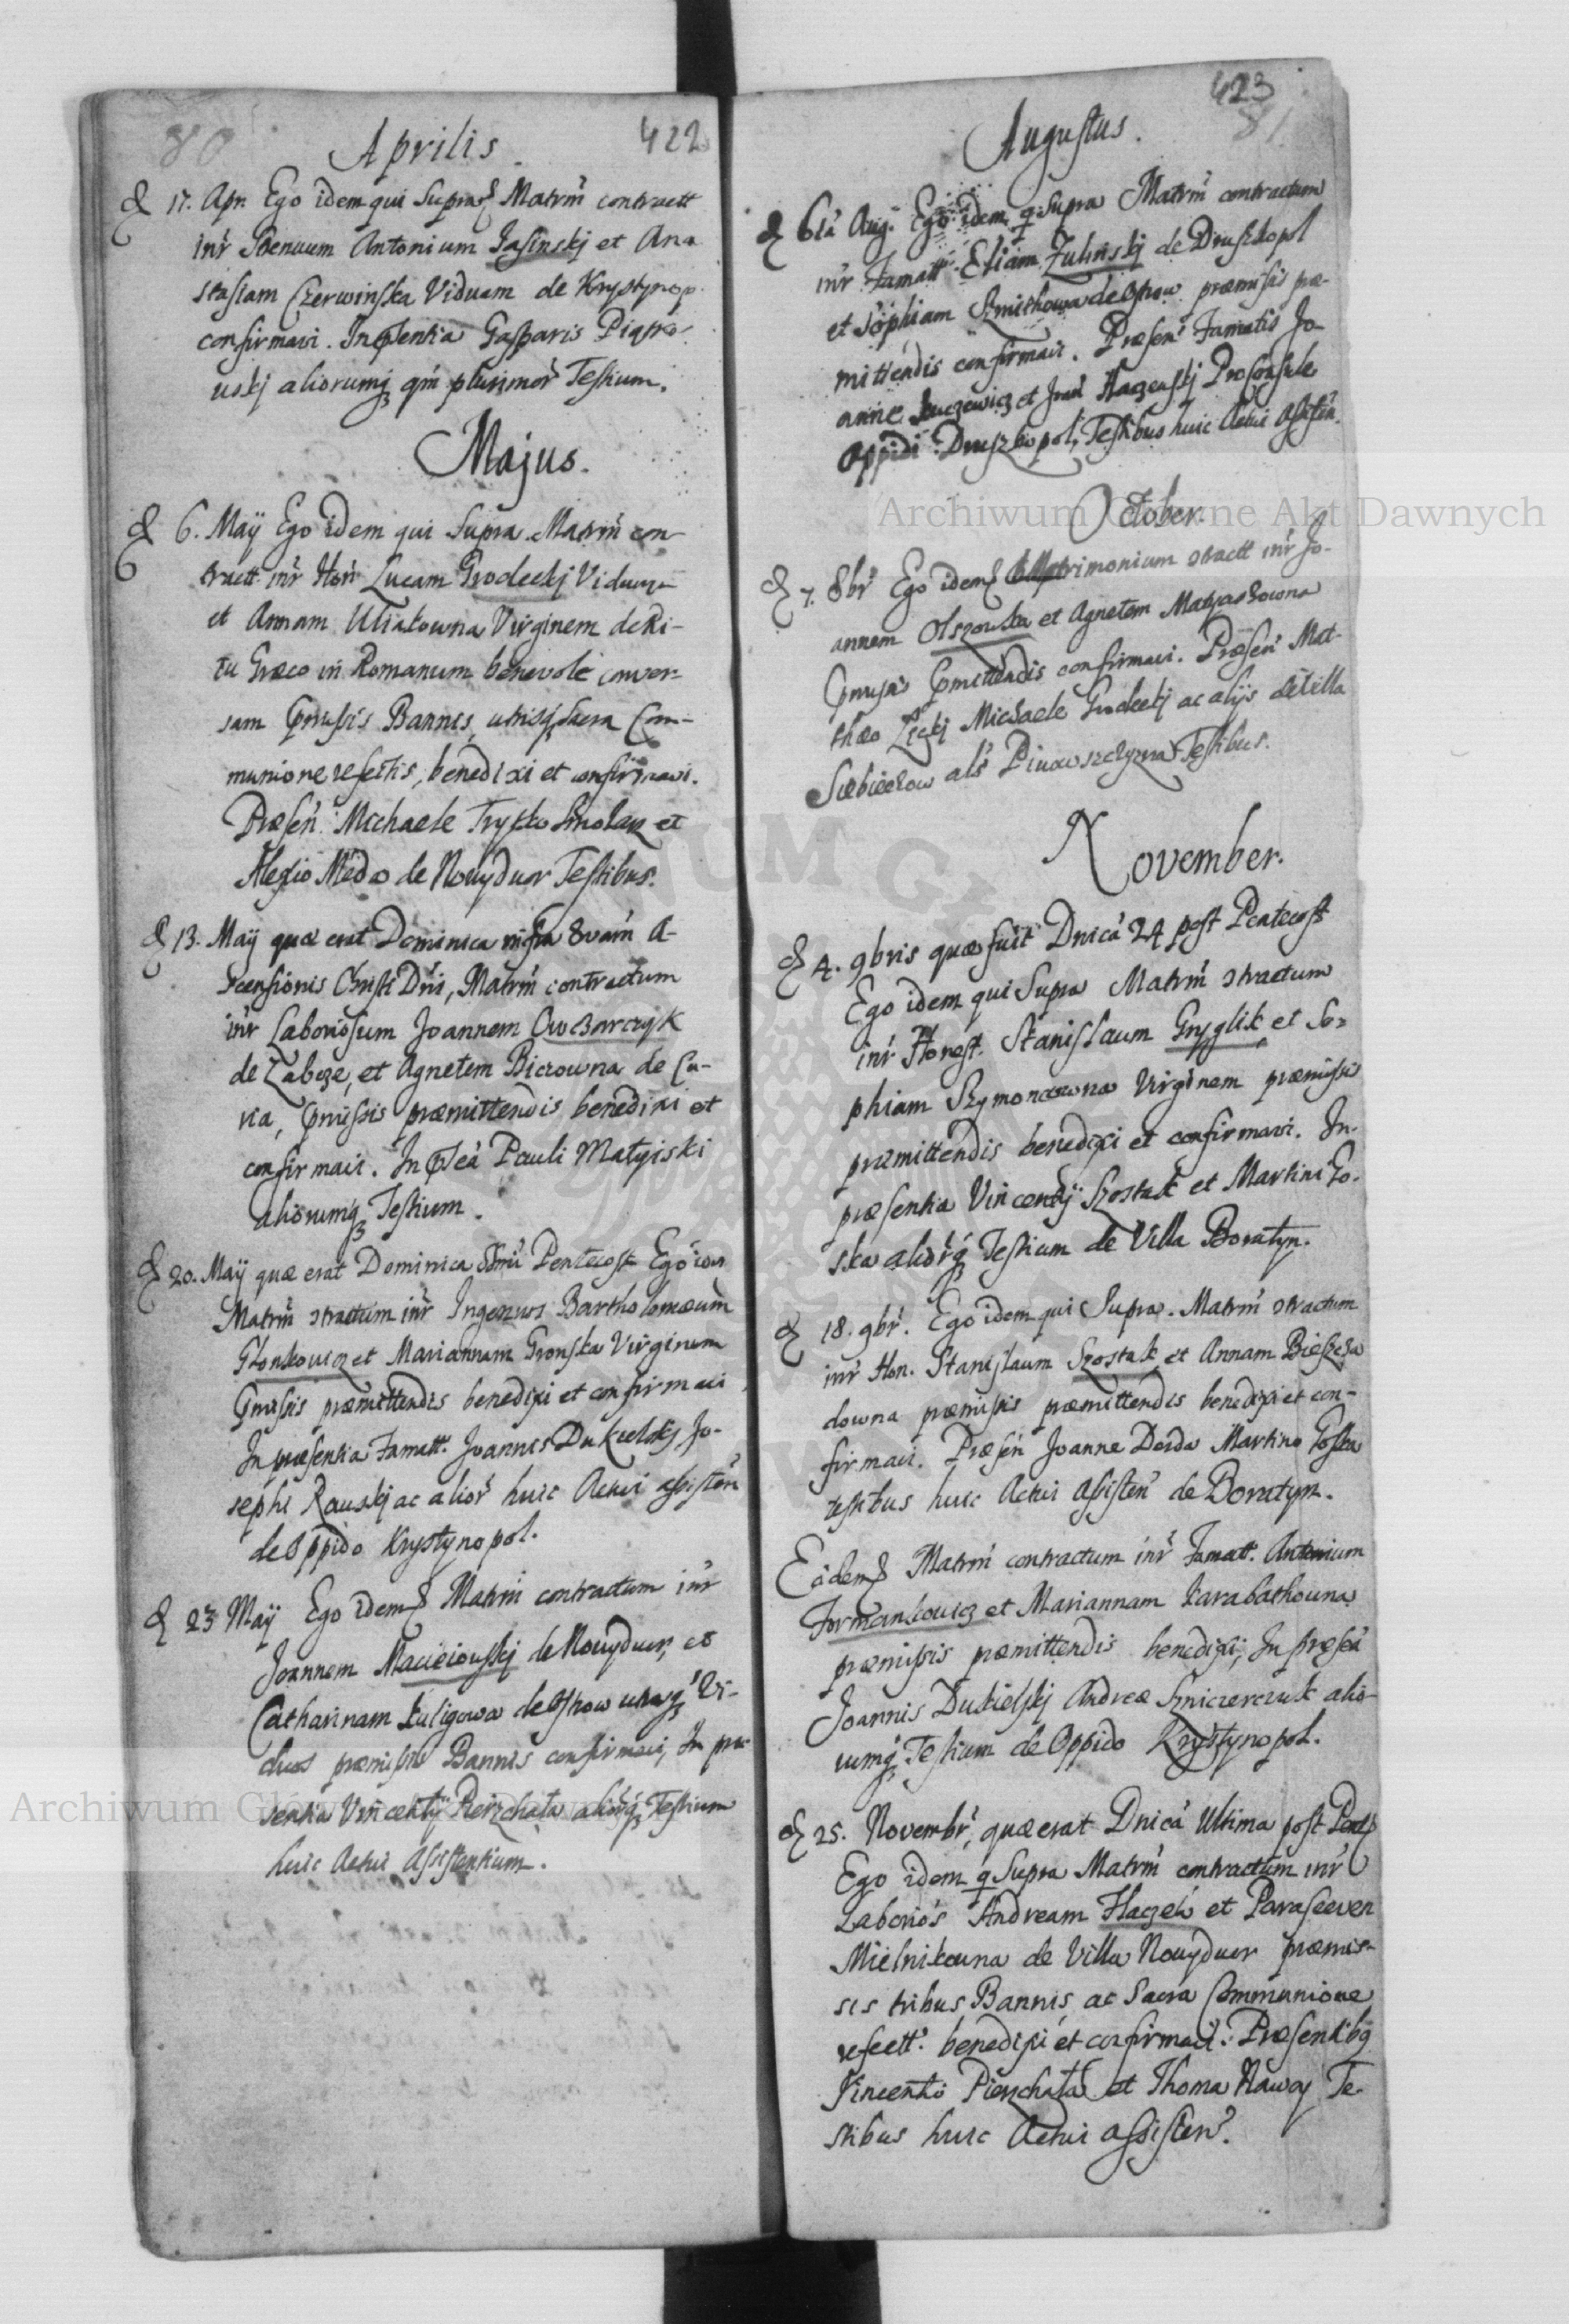 80
Aprilis.
422
17. Apr. Ego idem qui Supra Matrm̃ contractt
inr̃ Strenuum Antonium Jasinskj et Ana
stasiam Czerwinska Viduam de Krystynop.
confirmavi. In Gasparis
uskj aliorumq; qm̃ plurimor̃ Testium.
Majus.
6. Maÿ Ego idem qui Supra Matrm̃ con-
tractt inr̃ Hon̄ Lucam Grodeckj Viduum
et Annam Uliakowna Virginem de Ri-
tu Græco in Romanum benevole conver-
sam Bannis, utrisq; Sacra Com-
munione refectis, benedixi et confirmavi.
Præsen̄. Michaele Smolarz et
Alexio de Nowydwor Testibus.
13. Maÿ quæ erat Dominica infra 8vam̃ A-
scensionis Christi Dn̄i, Matrm̃ contractum
inr̃ Laboriosum Joannem Owczarczyk
de Zabcze, et Agnetem Bierowna de Cu-
ria, præmittendis benedixi et
confirmavi. In Pauli Matyiski
aliorumq; Testium.
20. Maÿ quæ erat Dominica Pentecost Ego
Matrm̃ ɔtractum inr̃ Ingenuos Bartholomæum
Glonkowicz et Mariannam Gronska Virginem
præmittendis benedixi et confirmavi
In præsentia Famatt. Joannis Dukielskj Jo-
sephi Rauskj ac alior̃ huic Actui assisten̄
de Oppido Krystynopol.
23 Maÿ Ego idem Matrm̃ contractum inr̃
Joannem Macieiouskj de Nowydwor, et
Catharinam Kuligowa de Ostrow utrosq; Vi-
duos præmissis Bannis confirmavi, In præ
sentia Vincentÿ Pierzchała alior̃q; Testium
huic Actui Assistentium.
423
81
Augustus.
6ta Aug. Ego idem q Supra Matrm̃ contractum
inr̃ Famatt. Eliam Zulinskj de Druszkopol
et Sophiam de Ostrow præmissis præ-
mittendis confirmavi. Præsen̄ Famatis Jo-
anne et Proconsule
Oppidi Druszkopol, Testibus huic Actui Assisten̄.
October.
7. 8br̃ Ego idem Matrimonium ɔtractt inr̃ Jo-
annem Olszowka et Agnetem Matyaskowna
confirmavi. Præsen̄ Mat-
thæo Michaele Grodeckj ac alÿs de Villa
als Piwowszczyzna Testibus.
November.
4. 9bris quæ fuit Dnicã 24 post Pentecost
Ego idem qui Supra Matrm̃ ɔtractum
inr̃ Honest. Stanislaum Gryglik et So-
phiam Szymonowna Virginem præmissis
præmittendis benedixi et confirmavi. In-
præsentia Vincentÿ Szostak et Martini Go-
ska alior̃q; Testium de Villa Boratyn.
18. 9br̃. Ego idem qui Supra. Matrm̃ ɔtractum
inr̃ Hon. Stanislaum Szostak et Annam
downa præmissis præmittendis benedixi et con-
firmavi. Præsen̄ Joanne Martino Goska
testibus huic Actui Assisten̄ de Boratyn.
Eadem Matrm̃ contractum inr̃ Famatt. Antonium
Formankowicz et Mariannam Karabathowna
præmissis præmittendis benedixi; In præseã
Joannis Dukielskj Andreæ alio-
rumq; Testium de Oppido Krystynopol.
25. Novembr̃, quæ erat Dnicã Ultima post Pent
Ego idem q Supra Matrm̃ contractum inr̃
Laborios Andream et Parasceven
Mielnikowna de Villa Nowydwor præmis-
sis tribus Bannis ac Sacra Communione
refectt. benedixi et confirmavi. Præsentibq
Vincentio Pierzchała et Thoma Te-
stibus huic Actui assisten̄.
Archiwum Główne Akt Dawnych
Archiwum Główne Akt Dawnych